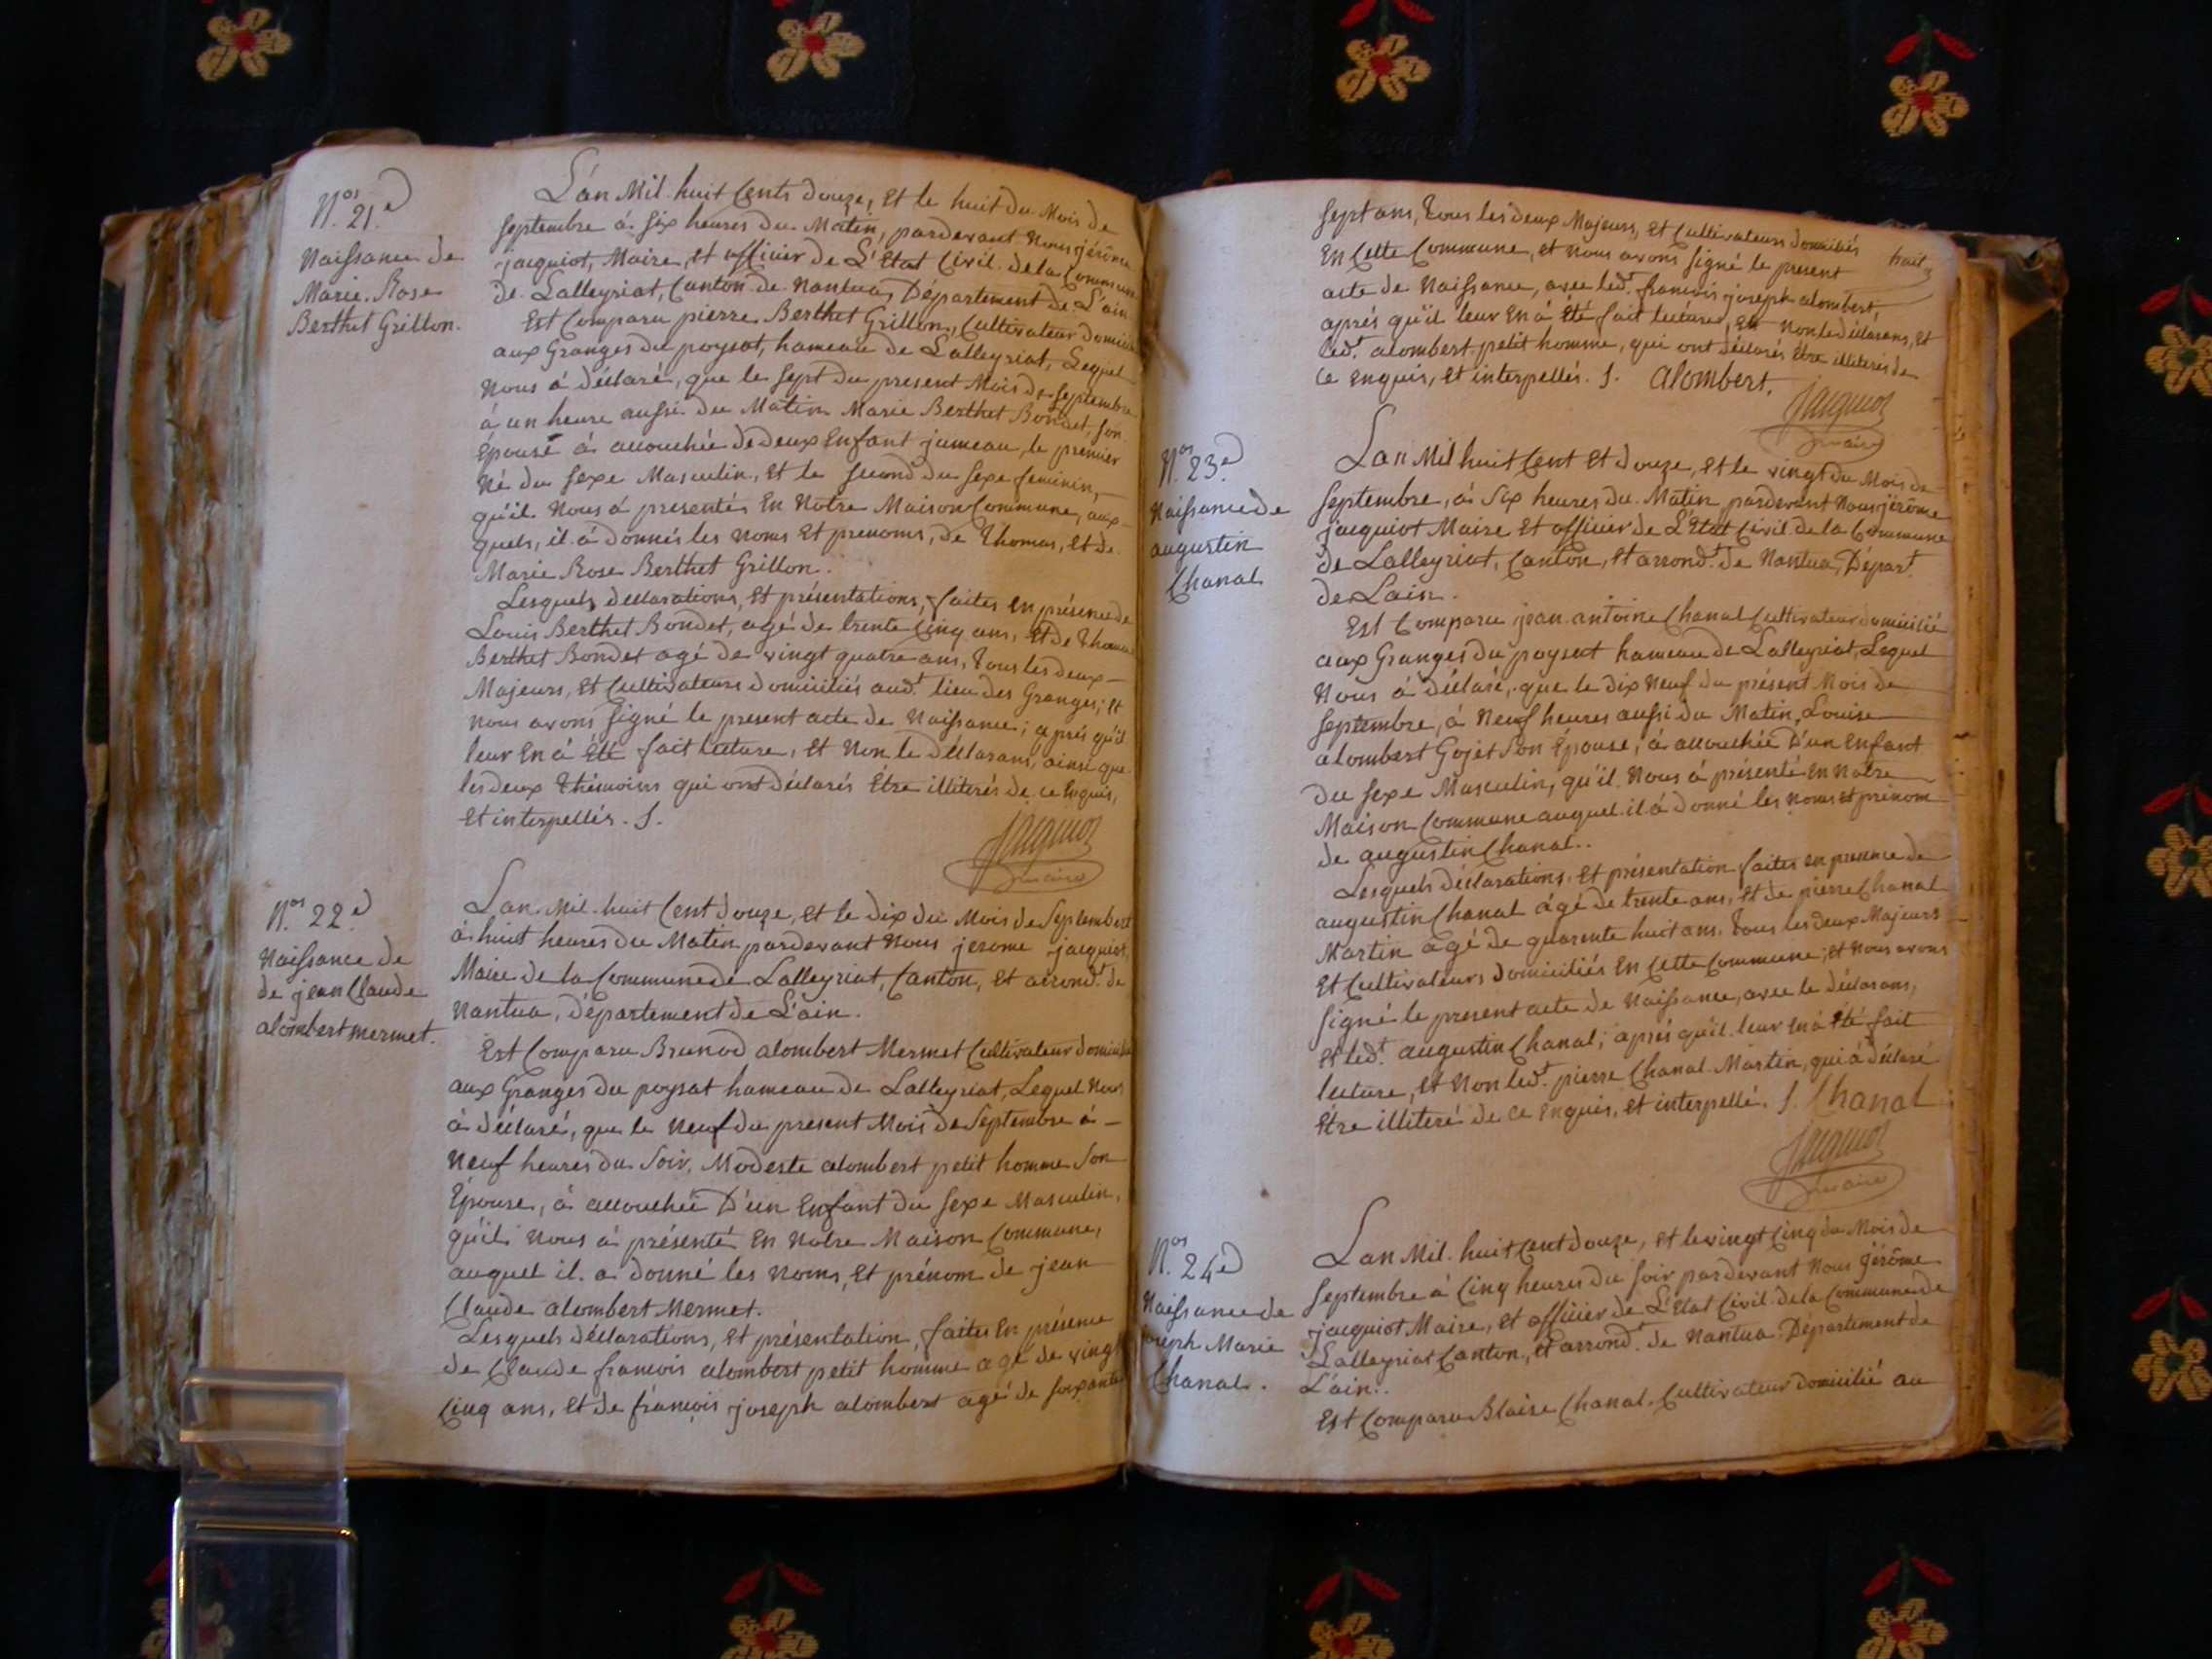 Nos 21e
Naissance de
Marie Rose
Berthet Grillon.
L'an Mil huit Cents douze, Et le huit du Mois de
septembre à six heures du Matin, pardevant Nous jérôme
jacquiot, Maire, et officier de L'Etat Civil de la Commune
de Lalleyriat, Canton de Nantua, Département de L'ain
Est Comparu pierre Berthet Grillon, Cultivateur domicilié
aux Granges du poysat, hameau de Lalleyriat, Lequel
Nous á déclaré, que le sept du present Mois de septembre
à un heure aussi du Matin Marie Berthet Bondet, son
Epouse á accouchée de deux Enfant jumeau, le premier
Né du sexe Masculin, Et le second du sexe feminin,
qu'il Nous á presentés En Notre Maison Commune, aux
quels, il á donnés les Noms Et prenoms, de Thomas, Et de
Marie Rose Berthet Grillon.
Lesquels déclarations, Et présentations, faites En présence de
Louis Berthet Bondet, agé de trente Cinq ans, Et de Thomas
Berthet Bondet agé de vingt quatre ans, tous les deux
Majeurs, Et Cultivateurs domiciliés audt. lieu des Granges; Et
Nous avons signé le present acte de Naissance; aprés qu'il
leur En á Eté fait lecture, Et Non le déclarans, ainsi que
les deux Thémoins qui ont déclarés Etre illiterés de ce Enquis,
Et interpellés. S.
Jacquiot
maire
Nos 22e
Naissance de
de jean Claude
alombert mermet.
Lan Mil huit Cent douze, Et le dix du Mois de Septembre
à huit heures du Matin pardevant Nous jerome jacquiot,
Maire de la Commune de Lalleyriat, Canton, Et arrondt. de
Nantua, département de L'ain.
Est Comparu Brunod alombert Mermet Cultivateur domicilié
aux Granges du poysat hameau de Lalleyriat, Lequel Nous
á déclaré, que le Neuf du present Mois de Septembre à
Neuf heures du Soir, Modeste alombert petit homme Son
Epouse, á accouchée D'un Enfant du sexe Masculin,
qu'il Nous á présenté En Notre Maison Commune,
auquel il a donné les Noms, Et prénom de jean
Claude alombert Mermet.
Lesquels déclarations, Et présentation, faites En présence
de Claude francois alombert petit homme agé de vingt
Cinq ans, Et de francois joseph alombert agé de soixante
huit
sept ans, tous les deux Majeurs, Et Cultivateurs domiciliés
En Cette Commune, Et Nous avons signé le present
acte de Naissance, avec ledt. francois joseph alombert,
aprés qu'il leur En á Eté fait lecture, Et Non le déclarans, Et
ledt. alombert petit homme, qui ont déclarés Etre illiterés de
ce Enquis, Et interpellés. S. alombert.
Jacquiot
maire
Nos 23e
Naissance de
augustin
Chanal
Lan Mil huit Cent Et douze, Et le vingt du Mois de
septembre, à Six heures du Matin pardevant Nous jérôme
jacquiot Maire Et officier de L'Etat Civil de la Commune
de Lalleyriat, Canton, Et arrondt. de Nantua, Départ.
de Lain.
Est Comparu jean antoine Chanal Cultivateur domicilié
aux Granges du poysat hameau de Lalleyriat, Lequel
Nous á déclaré, que le dix Neuf du présent Mois de
septembre, à Neuf heures aussi du Matin, Louise
alombert Gojet Son Epouse, á accouchée D'un Enfant
du sexe Masculin, qu'il Nous á présenté En Notre
Maison Commune auquel il á donné les Noms et prénom
de augustin Chanal.
Lesquels déclarations, Et présentation faites en presence de
augustin Chanal agé de trente ans, Et de pierre Chanal
Martin agé de quarente huit ans, tous les deux Majeurs
Et Cultivateurs domiciliés En Cette Commune, Et Nous avons
signé le present acte de Naissance, avec le déclarans,
et ledt. augustin Chanal; aprés qu'il leur En á Eté fait
lecture, Et Non ledt. pierre Chanal Martin, qui á déclaré
Etre illiteré de ce Enquis, Et interpellé. S. Chanal
Jacquiot
maire
Nos 24e
Naissance de
joseph Marie
Chanal.
Lan Mil huit Cent douze, Et le vingt Cinq du Mois de
Septembre à Cinq heures du soir pardevant Nous Jérôme
jacquiot Maire, Et officier de L'Etat Civil de la Commune de
Lalleyriat Canton, Et arrondt. de Nantua. Departement de
L'ain.
Est Comparu Blaise Chanal Cultivateur domicilié au